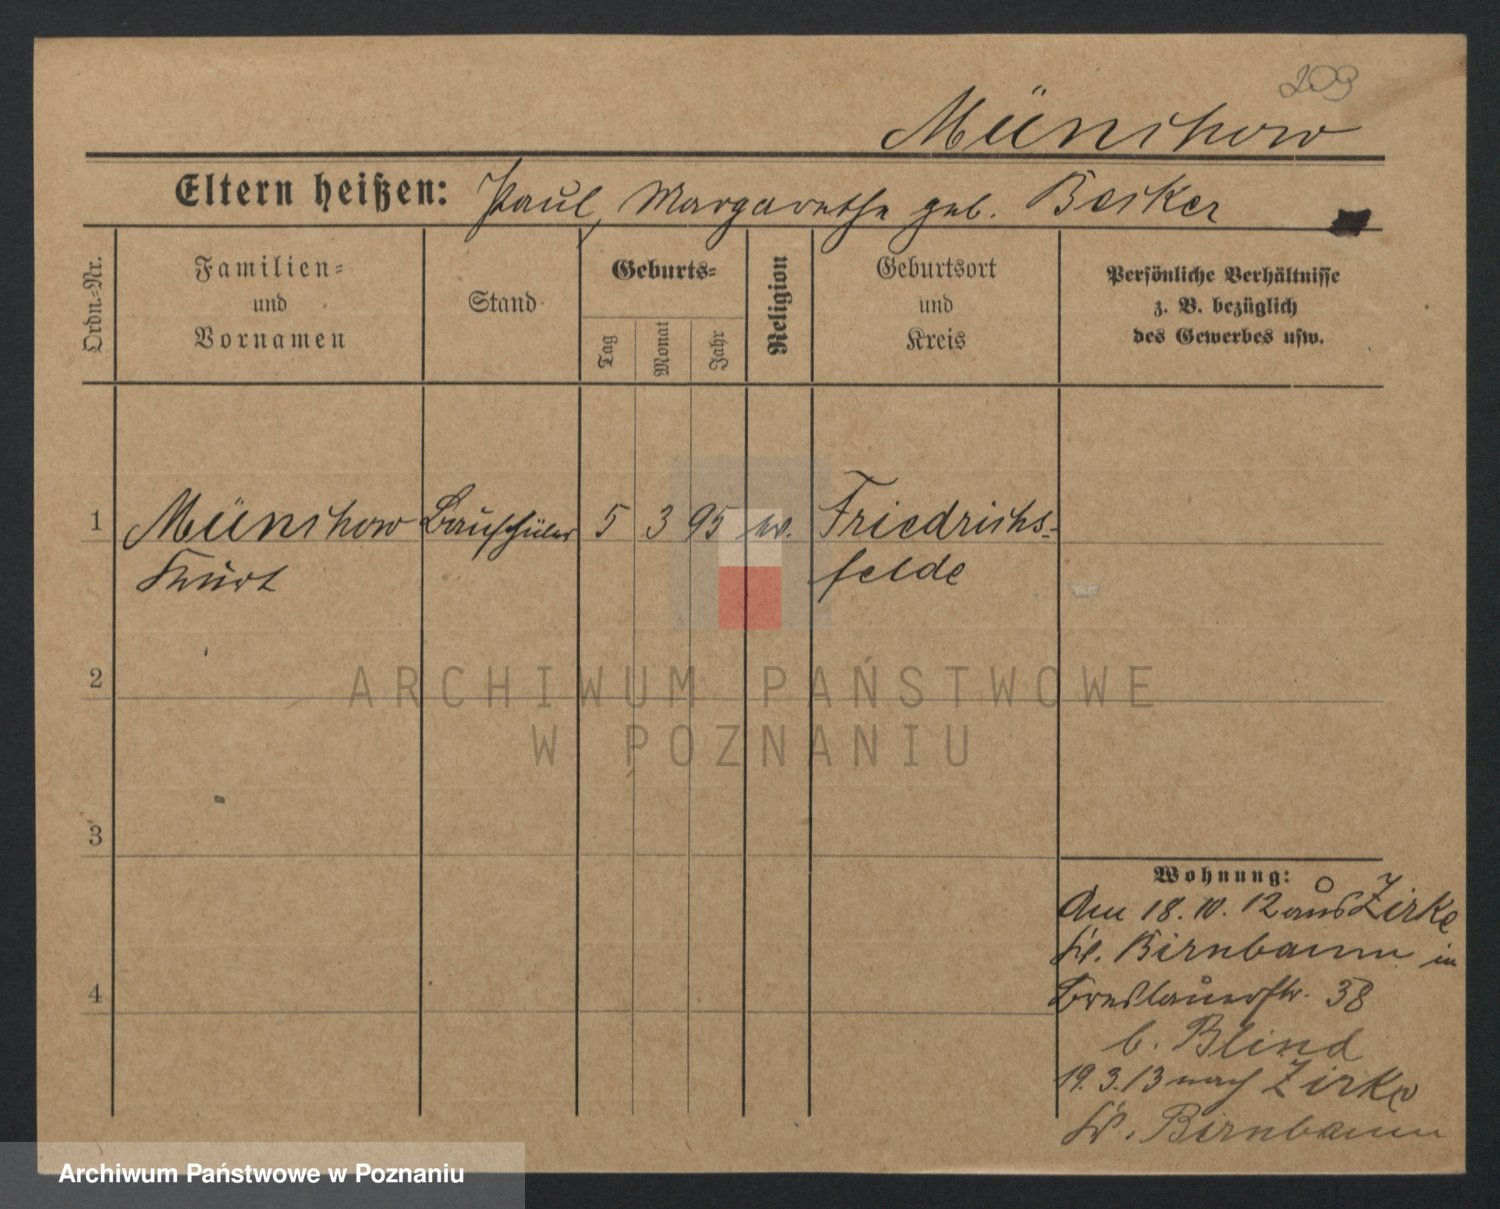 209
Münchow
Eltern heißen: Paul, Margarethe geb. Becker
Ordn.-Nr.
Familien-
und
Vornamen
Stand
Geburts-
Tag
Monat
Jahr
Religion
Geburtsort
und
Kreis
Persönliche Verhältnisse
z. B. bezüglich
des Gewerbes usw.
1 Münchow Bauschüler 5 3 95 ev. Friedrichs-
Kurt felde
2
3
4
Wohnung:
Am 18. 10. 12 aus Zirke
Kr. Birnbaum in
Breslauerstr. 38
b. Blind
19. 3. 13 nach Zirke
Kr. Birnbaum
ARCHIWUM PAŃSTWOWE
W POZNANIU
Archiwum Państwowe w Poznaniu